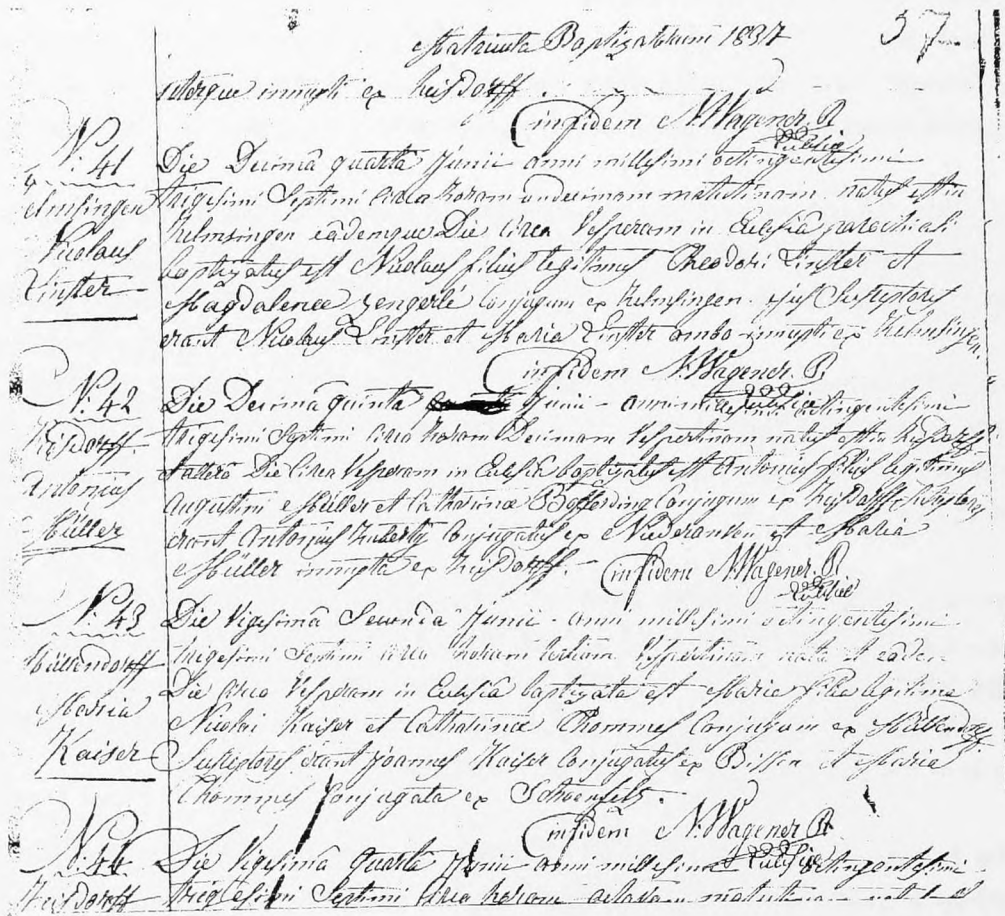 Matricula Baptizatorum 1837 57
uterque innupti ex Heisdorff.
in fidem N. Wagener. P.
N: 41
Die Decimâ quarta Junii anni millesimi octingentesimi
trigesimi Septimi circa horam undecimam matutinam natus est in
Helmsingen eâdemque Die circa Vesperam in Eclesiâ parochiali
Nicolaus
baptizatus est Nicolaus filius legitimus Theodori Linster et
Linster
Magdalenæ Zengerlé Conjugum ex Helmsingen. ejus Susceptores
erant Nicolaus Linster et Maria Linster ambo innupti ex Helmsingen.
in fidem N. Wagener. P.
N: 42
Die Decimâ quinta Junii - anni millesimi octingentesimi
Heisdorff
trigesimi Septimi circa horam Decimam Vespertinam natus est in Heisdorff
Antonius
Die circa Vesperam in Eclesiâ baptizatus est Antonius filius legitimus
Augustini Müller et Catharinæ Bofferding Conjugum ex Heisdorff, Susceptores
Müller
erant Antonius Conjugatus ex Niederanven et Maria
Müller innupta ex Heisdorff. -
in fidem N. Wagener. P.
N: 43
Die Vigesimâ Secunda Junii - anni millesimi octingentesimi
Müllendorff
trigesimi Septimi circa horam tertiam Vespertinam nata et eâdem
Maria
Die circa Vesperam in Eclesiâ baptizata est Maria filia legitima
Nicolai Kaiser et Catharinæ Thommes Conjugum ex Müllendorff
Kaiser
Susceptores erant Joannes Kaiser Conjugatus ex Bissen et Maria
Thommes Conjugata ex Schoenfels.
in fidem N. Wagener P.
N: 44
Die Vigesimâ quarta Junii anni millesimi octingentesimi
Heisdorff
trigesimi Septimi circa horam octavam